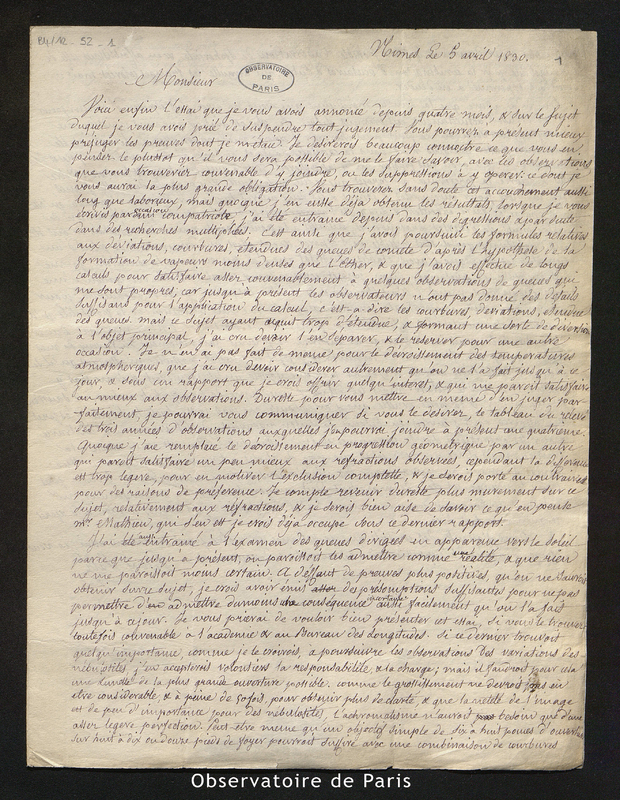 B4/12 - 52 - 1
Nimes Le 5 avril 1830.
1
OBSERVATOIRE
DE
PARIS
Monsieur
Voici enfin l'essai que je vous avois annoncé depuis quatre mois, & sur le sujet
duquel je vous avois prié de suspendre tout jugement. Vous pourrez à present mieux
préjuger les preuves dont je m'étaie. Je desirerois beaucoup connoitre ce que vous en
penser. le plustot qu'il vous sera possible de me le faire savoir, avec les observations
que vous trouverier convenable d'y joindre, ou les suppressions à y operer: ce dont je
vous aurai la plus grande obligation. Vous trouverez sans doute cet accouchement aussi
long que laborieux, mais quoique j'en eusse déja obtenu les résultats, lorsque je vous
écrivis par occasion d'un compatriote, j'ai été entrainé depuis dans des digressions & par suite
dans des recherches multipliées. C'est ainsi que j'avois poursuivi les formules relatives
aux déviations, courbures, étendues des queues de comète d'après l'hypothèse de la
formation de vapeurs moins denses que l'éther, & que j'avois effectué de longs
calculs pour satisfaire asser convenablement à quelques observations de queues qui
me sont propres; car jusqu'à présent les observateurs n'ont pas donné des détails
suffisans pour l'application du calcul, c'est-à-dire les courbures, déviations, étendues
des queues. mais ce sujet ayant acquit trop d'étendue, & formant une sorte de diversion
à l'objet principal, j'ai cru devoir l'en séparer, & le reserver pour une autre
occasion. Je n'en ai pas fait de meme pour le décroissement des températures
atmosphériques, que j'ai cru devoir considérer autrement qu'on ne l'a fait jusqu'à ce
jour, & sous un rapport que je crois offrir quelqu'interet, & qui me paroit satisfaire
au mieux aux observations. Dureste pour vous mettre en meme d'en juger par-
faitement, je pourrai vous communiquer si vous le desirez, le tableau du relevé
des trois années d'observations auxquelles j'en pourrai joindre à présent une quatrième.
Quoique j'aie remplacé le décroissement en progression géometrique par un autre
qui paroit satisfaire un peu mieux aux réfractions observées, cependant la différence
est trop legere, pour en motiver l'exclusion complette, & je serois porté au contraire
pour des raisons de préférence. Je compte revenir dureste plus murement sur ce
sujet, relativement aux réfractions, & je serois bien aise de savoir ce qu'en pense
mr Mathieu, qui s'en est je crois déja occupé sous ce dernier rapport.
J'ai été aussi entrainé à l'examen des queues dirigées en apparence vers le soleil
parce que jusqu'à présent, on paroissoit les admettre comme une réalité, & que rien
ne me paroissoit moins certain. A défaut de preuves plus positives, qu'on ne sauroit
obtenir sur ce sujet, je crois avoir émis de présomptions suffisantes pour ne pas
permettre d'en admettre dumoins la conséquence aussi facilement qu'on l'a fait
jusqu'à ce jour. Je vous prierai de vouloir bien présenter cet essai, si vous le trouvez
toutefois convenable à l'académie & au Bureau des Longitudes. Si ce dernier trouvoit
quelqu'importance comme je le croirois, à poursuivre les observations des variations des
nébulosités, j'en accepterois volontiers la responsabilité & la charge; mais il faudroit pour cela
une lunette de la plus grande ouverture possible. comme le grossissement ne devroit pas en
etre considerable & à peine de 60 fois, pour obtenir plus de clarté, & que la netteté de l'image
est de peu d'importance pour des nébulosités, l'achromatisme n'auroit besoin que d'une
asser legere perfection. Peut-etre meme qu'un objectif simple de six à huit pouces d'ouverture
sur huit à dix ou douze pieds de foyer pourroit suffire avec une combinaison de courbures
Observatoire de Paris